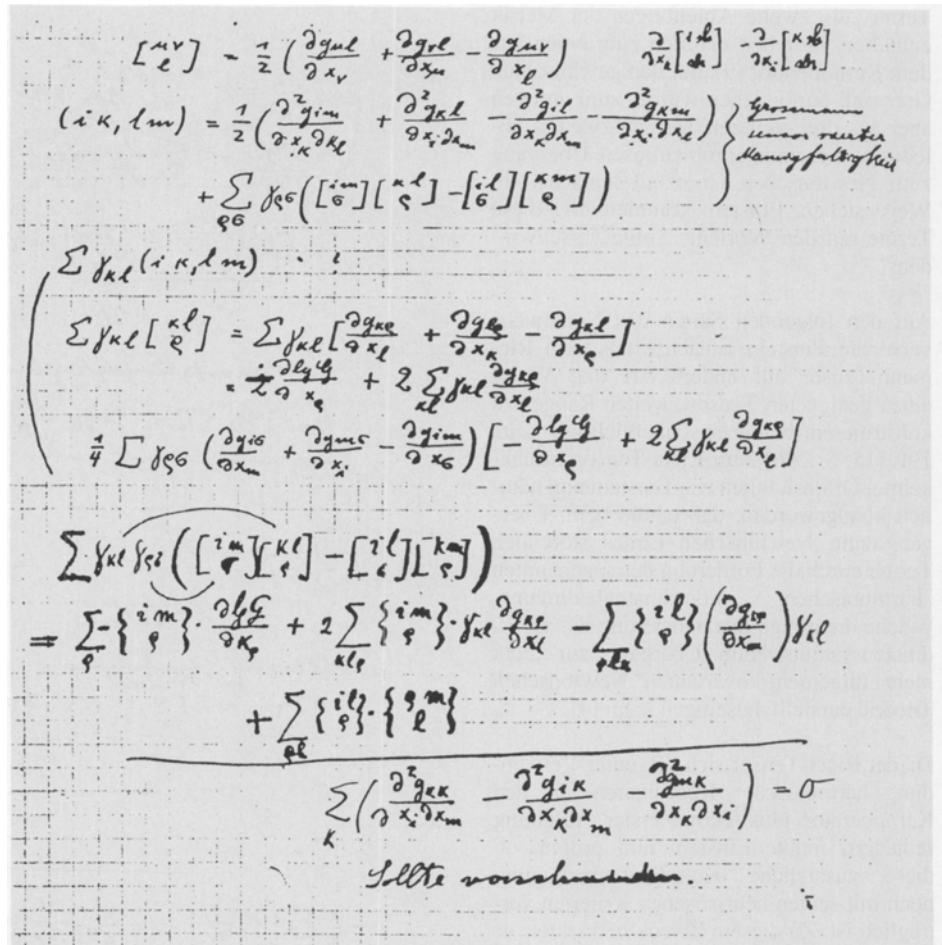 [μν l] = ½ (∂gμl/∂xν + ∂gνl/∂xμ − ∂gμν/∂xl) ∂/∂xk [i l m] − ∂/∂xi [κ l m]
(iκ, lm) = ½ (∂²gim/∂xκ∂xl + ∂²gκl/∂xi∂xm − ∂²gil/∂xκ∂xm − ∂²gκm/∂xi∂xl) } Grossmann
Tensor vierter
Mannigfaltigkeit
+ Σρσ γρσ ([im σ][κl ρ] − [il σ][κm ρ])
Σ γκl (iκ, lm) . . ?
Σ γκl [κl ρ] = Σ γκl [∂gκρ/∂xl + ∂glρ/∂xκ − ∂gκl/∂xρ]
= − ∂lgG/∂xρ + 2 Σκl γκl ∂gκρ/∂xl
¼ Σ γρσ (∂giσ/∂xm + ∂gmσ/∂xi − ∂gim/∂xσ) [− ∂lgG/∂xρ + 2 Σκl γκl ∂gκρ/∂xl
Σ γκl γρσ ([im σ][κl ρ] − [il σ][κm ρ])
= Σρ −{im ρ} · ∂lgG/∂xρ + 2 Σκlρ {im ρ} · γκl ∂gκρ/∂xl − Σρlκ {il ρ} (∂gκρ/∂xm) γκl
+ Σρl {il ρ} · {ρm l}
Σκ (∂²gκκ/∂xi∂xm − ∂²giκ/∂xκ∂xm − ∂²gmκ/∂xκ∂xi) = 0
Sollte verschwinden.